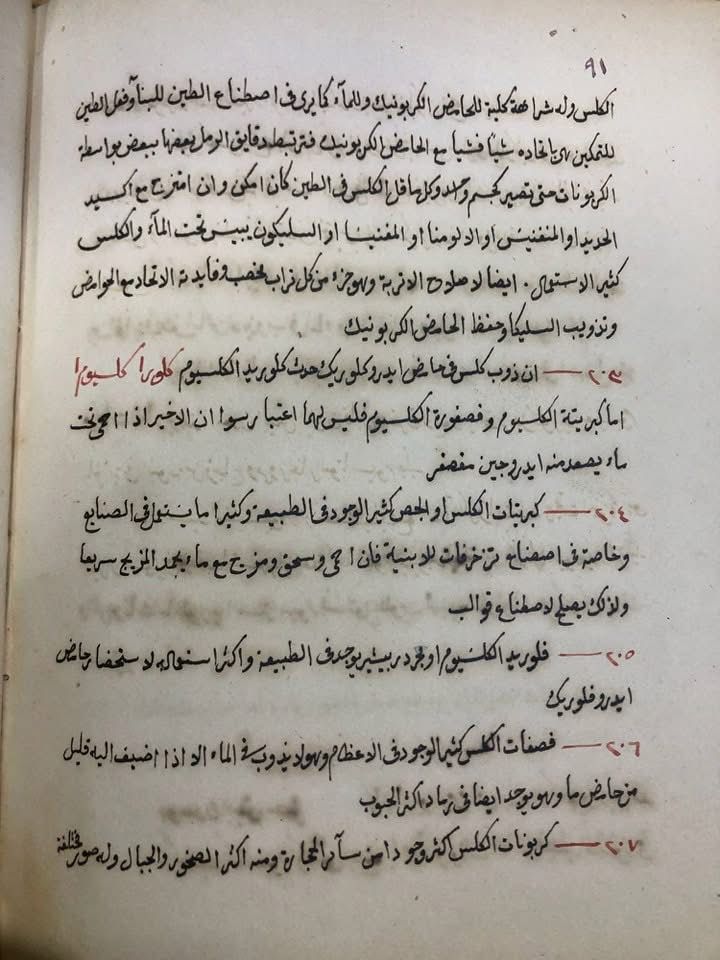 ٩١
الكلس وله شراهة كلية للحامض الكربونيك وللمآء كما يرى فى اصطناع الطين للبنآ وفعل الطين
للتمكين هى باتحاده شيًا فشيا مع الحامض الكربونيك فترتبط دقايق الرمل بعضها ببعض بواسطة
الكربونات حتى تصير كجسم واحد وكل ما قل الكلس فى الطين كان امكن وان امتزج مع اكسيد
الحديد او المنغنيس او الالومنا او المغنيسا او السليكون يبيس تحت المآء والكلس
كثير الاستعمال . ايضا لاصلاح الاتربة وهو جزء من كل تراب مخصب وفايدته الاتحاد مع الحوامض
وتذويب السليكا وحفظ الحامض الكربونيك
٢٠٣ — ان ذوب كلس فى حامض ايدروكلوريك حدث كلوريد الكلسيوم كلورا كلسيوم
اما كبريتة الكلسيوم وفصفورة الكلسيوم فليس لهما اعتبار سوا ان الاخير اذا احمى تحت
ماء يصعد منه ايدروجين مفصفر
٢٠٤ — كبريتات الكلس او الجص كثير الوجود فى الطبيعة وكثيرا ما يستعمل فى الصنايع
وخاصة فى اصطناع تزخرفات للابنية فان احمى وسحق ومزج مع ماء يجمد المزيج سريعا
ولذلك يصلح لاصطناع قوالب
٢٠٥ — فلوريد الكلسيوم او يوجد فى الطبيعة واكثر استعماله لاستحضار حامض
ايدروفلوريك
٢٠٦ — فصفات الكلس كثير الوجود فى الاعظام وهو لا يذوب فى الماء الا اذا اضيف اليه قليل
من حامض ما وهو يوجد ايضا فى رماد اكثر الحبوب
٢٠٧ — كربونات الكلس اكثر وجودا من سآئر الحجارة ومنه اكثر الصخور والجبال وله صور مختلفة